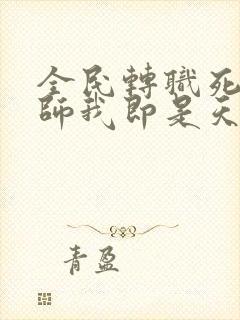 全民轉職死
師我即是天
青盈